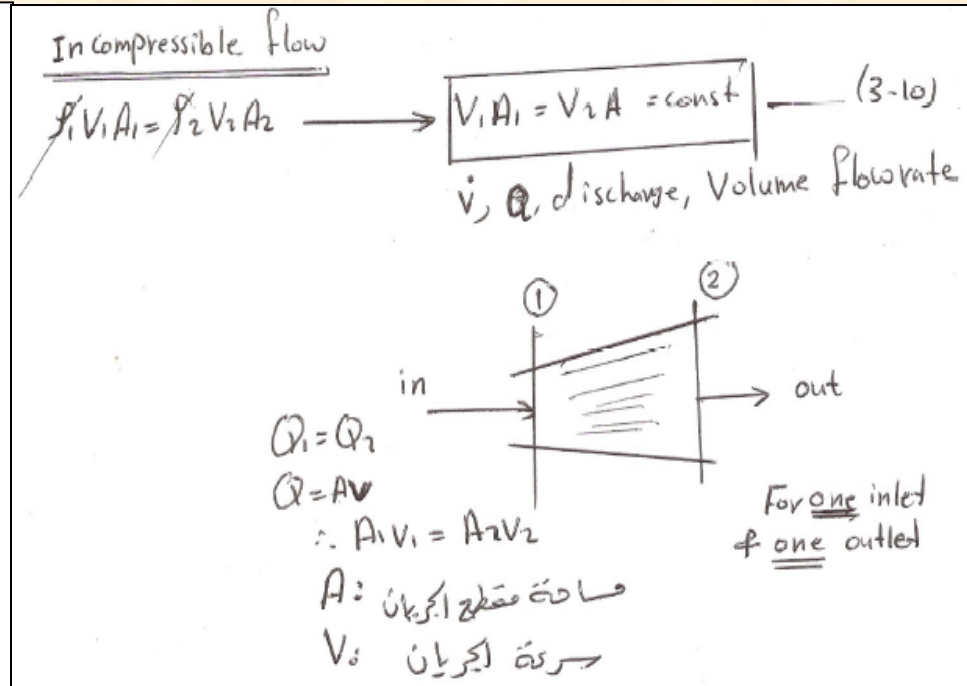 Incompressible flow
ρ₁V₁A₁ = ρ₂V₂A₂ → V₁A₁ = V₂A = const — (3-10)
V̇, Q, discharge, Volume flowrate
① ②
in out
Q₁ = Q₂
Q = AV
∴ A₁V₁ = A₂V₂
For one inlet
& one outlet
A: مساحة مقطع الجريان
V: سرعة الجريان